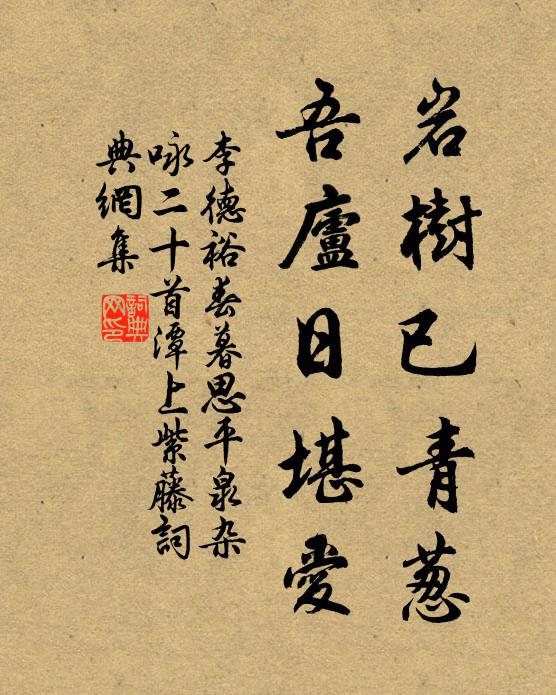 岩樹已青葱
吾廬日堪愛
李德裕春暮思平泉杂
咏二十首潭上紫藤詞
典網集
詞典
网印